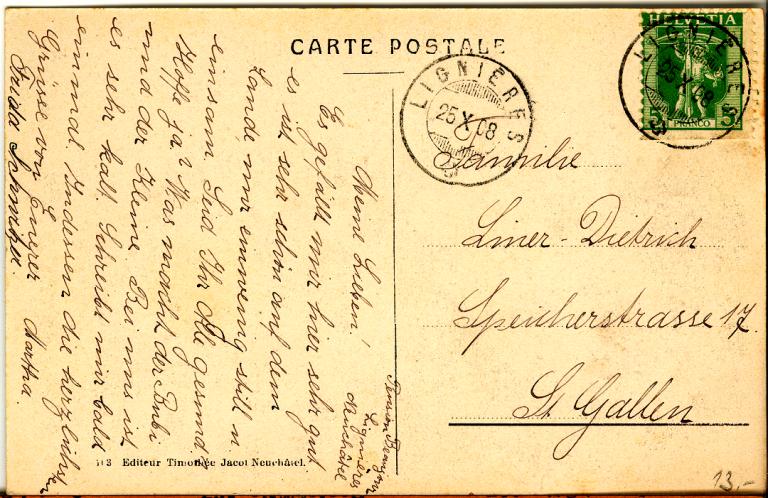 CARTE POSTALE
HELVETIA
5 FRANCO 5
LIGNIÈRES
25 X 08
LIGNIÈRES
25 X 08
Familie
Liner-Dietrich
Speicherstrasse 17
St. Gallen
13,-
Lignières
Neuchâtel
Meine Lieben!
Es gefällt mir hier sehr gut
es ist sehr schön auf dem
Lande nur ein wenig still u
einsam. Seid Ihr Alle gesund
Hoffe ja? Was macht der Bubi
und der Kleine. Bei uns ist
es sehr kalt. Schreibt mir bald
einmal. Indessen die herzlichsten
Grüsse von Euerer Martha.
Frida
Editeur Timothée Jacot Neuchâtel.